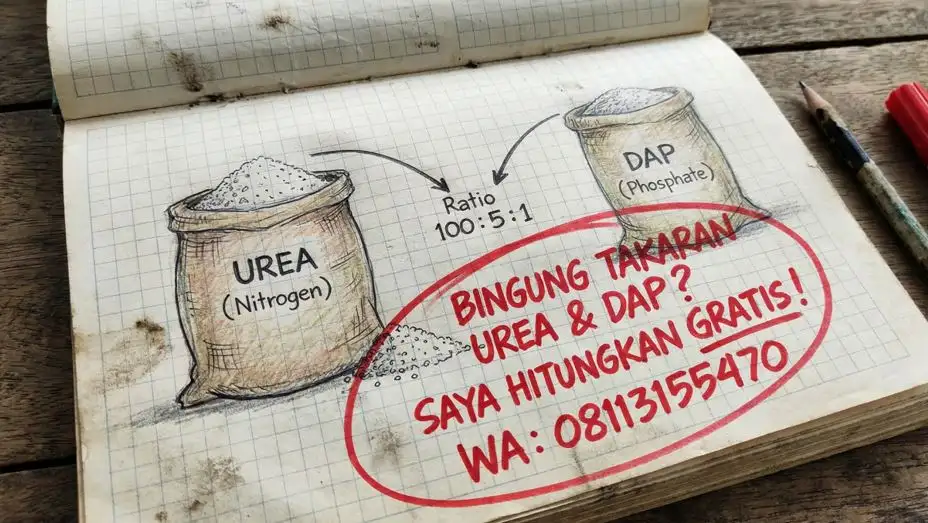 UREA
(Nitrogen)
Ratio
100:5:1
DAP
(Phosphate)
BINGUNG TAKARAN
UREA & DAP?
SAYA HITUNGKAN GRATIS!
WA: 08113155470